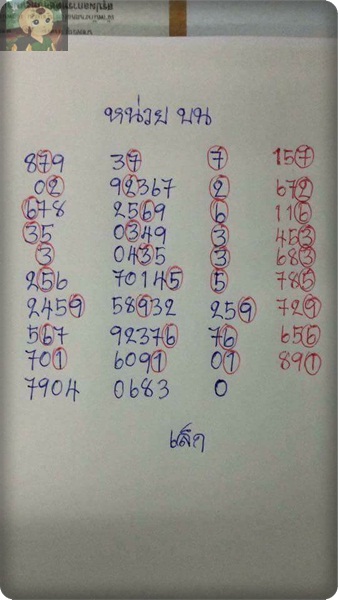 หน่วย บน
879 37 7 157
02 92367 2 672
678 2569 6 116
35 0349 3 453
3 0435 3 683
256 70145 5 785
2459 58932 259 729
567 92376 76 656
701 6091 01 891
7904 0683 0